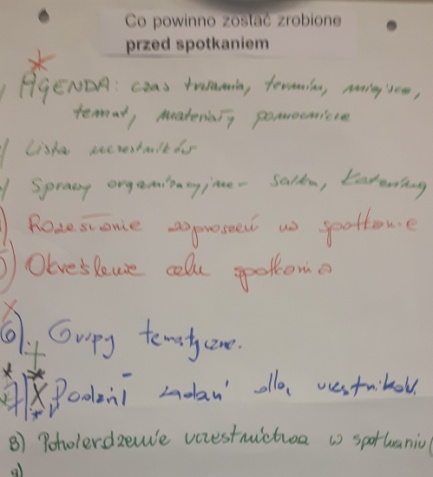 Co powinno zostać zrobione
przed spotkaniem
AGENDA: czas trwania, termin, miejsce,
temat, materiały pomocnicze
Lista uczestników
Sprawy organizacyjne - salka, Katering
Rozesłanie zaproszeń na spotkanie
5) Określenie celu spotkania
6). Grupy tematyczne.
7) Podział zadań dla uczestników.
8) Potwierdzenie uczestnictwa w spotkaniu(
9)